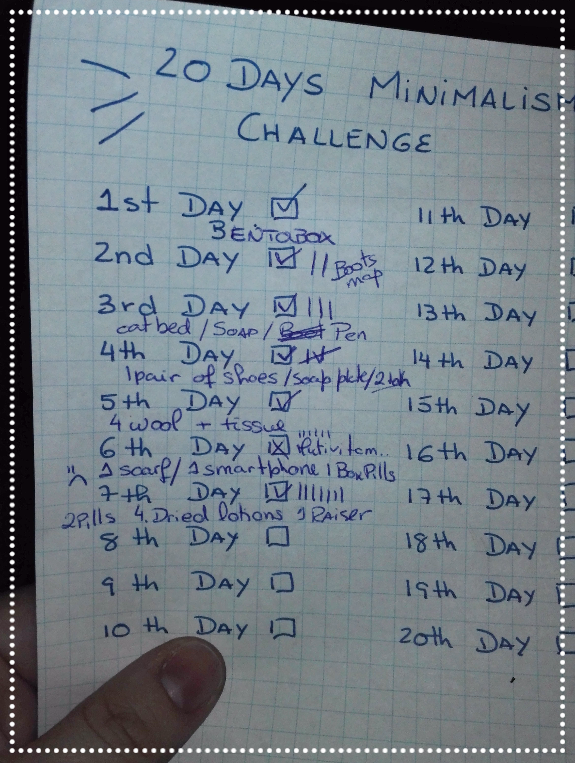 20 DAYS MINIMALISM
CHALLENGE
1st DAY
BENTOBOX
2nd DAY || Boots
map
3rd DAY |||
cat bed / SOAP / Pen
4th DAY
1 pair of shoes / soap plate /
5th DAY
4 wool + tissue
6th DAY
1 scarf / 1 smartphone 1 Box Pills
7th DAY ||||||||
2 Pills 4 Dried lotions 1 RAISER
8th DAY
9th DAY
10th DAY
11th DAY
12th DAY
13th DAY
14th DAY
15th DAY
16th DAY
17th DAY
18th DAY
19th DAY
20th DAY